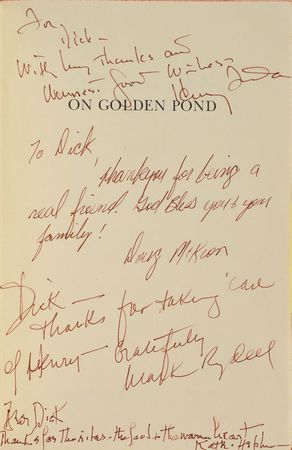 For
Dick -
With my thanks and
warmest good wishes -
Henry Fonda
ON GOLDEN POND
To Dick,
Thankyou for being a
real friend. God Bless you & your
family!
Doug McKeon
Dick -
thanks for taking care
of Henry - Gratefully
Mark Rydell
Dick
Thanks for the - the food & the warm heart
Kath. Hepburn